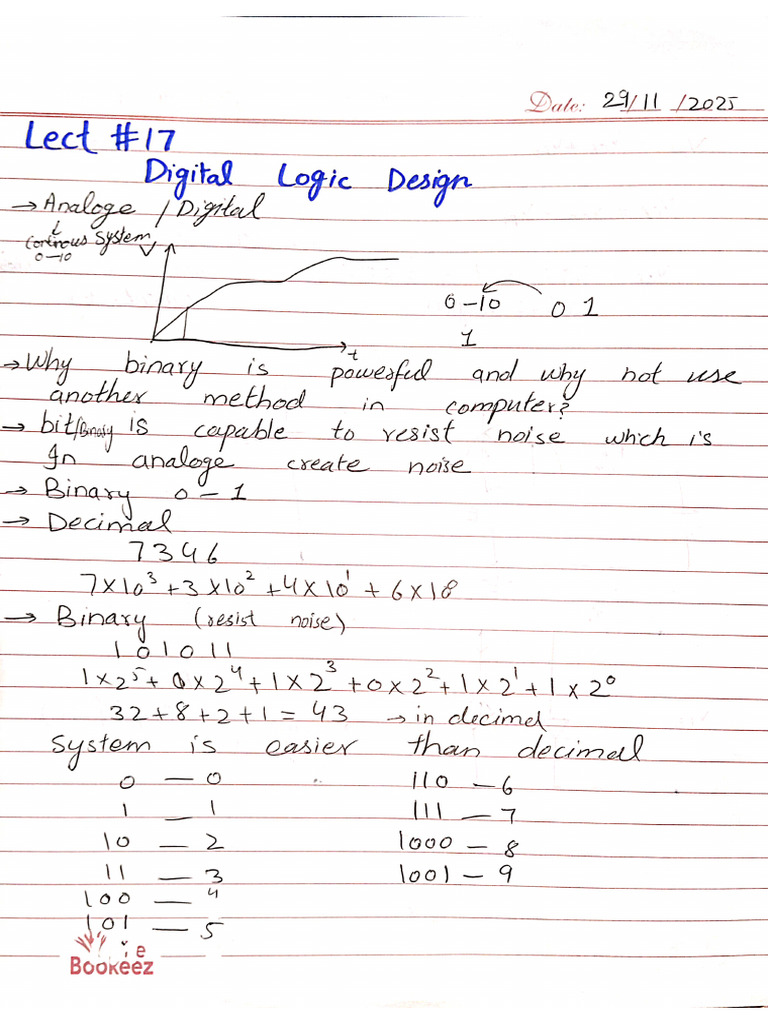 Date: 29/11/2025
Lect #17
Digital Logic Design
→ Analoge / Digital
Continous System
0-10
V
t
0-10 0 1
1
→ Why binary is powerful and why not use
another method in computer?
→ bit/Binary is capable to resist noise which is
In analoge create noise
→ Binary 0 – 1
→ Decimal
7346
7×10³+3×10²+4×10¹+6×10
→ Binary (resist noise)
101011
1×2⁵+0×2⁴+1×2³+0×2²+1×2¹+1×2⁰
32+8+2+1=43 → in decimel
System is easier than decimal
0 — 0 110 — 6
1 — 1 111 — 7
10 — 2 1000 — 8
11 — 3 1001 — 9
100 — 4
101 — 5
Bookeez